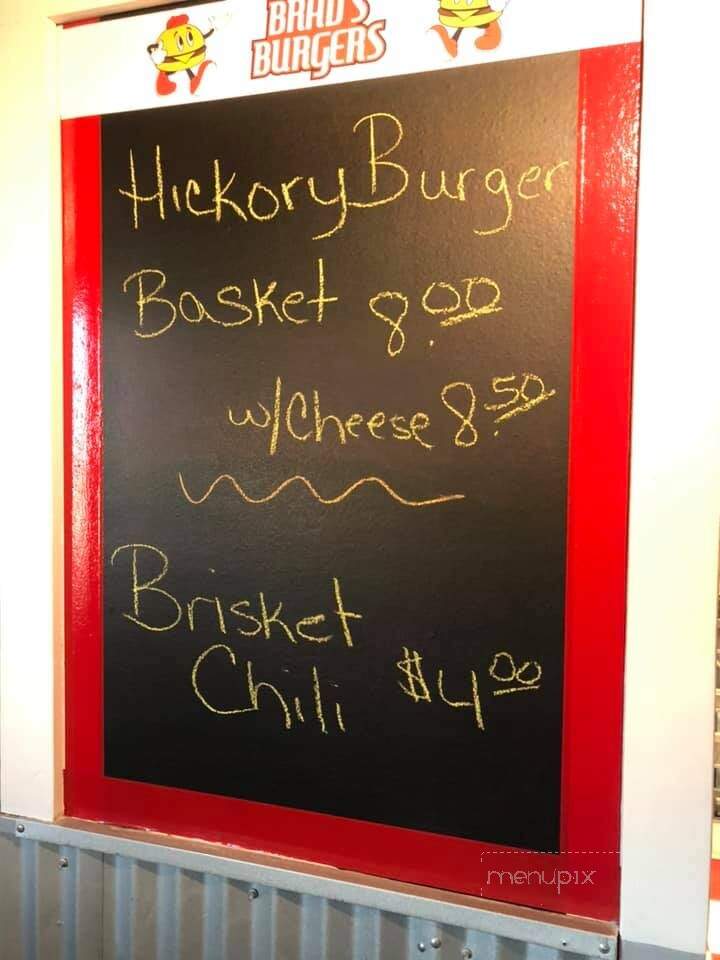 BRAD'S
BURGERS
Hickory Burger
Basket 8.00
w/Cheese 8.50
Brisket
Chili $4.00
menupix